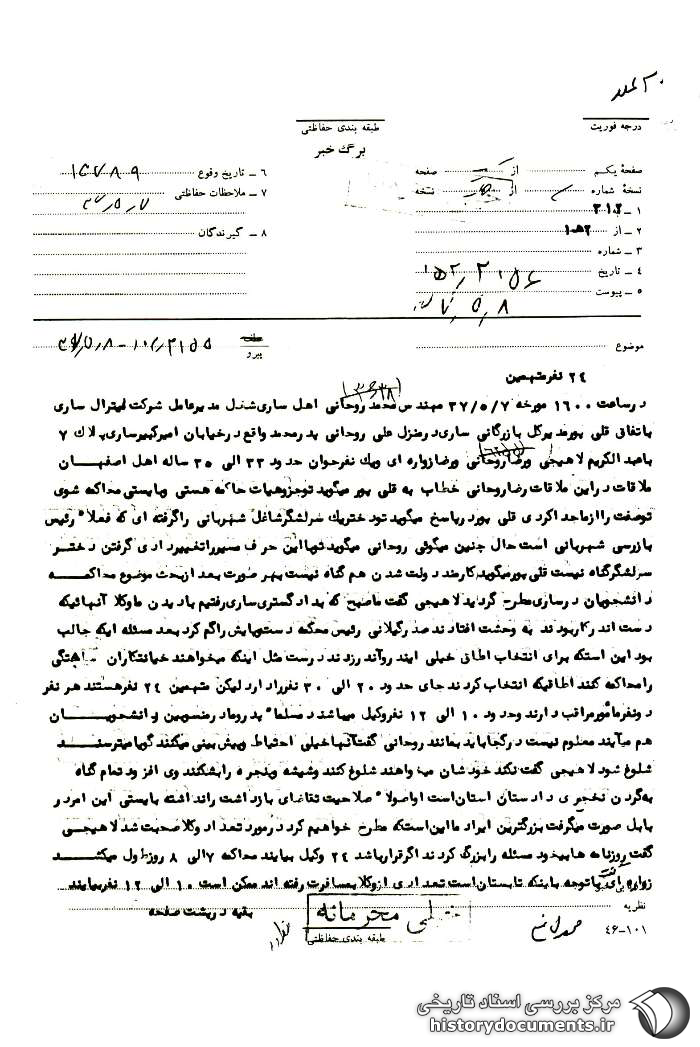 درجه فوریت
طبقه بندی حفاظتی
برگ خبر
صفحه یکم از صفحه
نسخه شماره از نسخه
۱ ـ ۳۱۲
۲ ـ از ۱۰۵۲
۳ ـ شماره
۴ ـ تاریخ
۵ ـ پیوست
۶ ـ تاریخ وقوع
۷ ـ ملاحظات حفاظتی
۸ ـ گیرندگان
موضوع
پیرو
۲۴ نفر متهمین
در ساعت ۱۶۰۰ مورخه ۳۷/۵/۷ مهندس محمد روحانی اهل ساری شغل مدیرعامل شرکت لیترال ساری
باتفاق قلی پور مدیرکل بازرگانی ساری در منزل علی روحانی پدر محمد واقع در خیابان امیرکبیر ساری پلاک ۷
با عبدالکریم لاهیجی و رضا روحانی و رضا زواره ای و یک نفر جوان حدود ۳۳ الی ۳۵ ساله اهل اصفهان
ملاقات در این ملاقات رضا روحانی خطاب به قلی پور میگوید تو جزو هیات حاکمه هستی و بایستی محاکمه شوی
تو صفت را از ما جدا کردی قلی پور در پاسخ میگوید تو دختر یک سرلشگر شاغل شهربانی را گرفته ای که فعلاً رئیس
بازرسی شهربانی است حال چنین میگوئی روحانی میگوید تو با این حرف مسیر را تغییر دادی گرفتن دختر
سرلشگر گناه نیست قلی پور میگوید کارمند دولت شدن هم گناه نیست بهر صورت بعد از بحث موضوع محاکمه
دانشجویان در ساری مطرح گردید لاهیجی گفت ما صبح که بدادگستری ساری رفتیم با دیدن ما وکلا آنهائیکه
دست اندرکار بودند به وحشت افتادند صدر گیلانی رئیس محکمه دست و پایش را گم کرد بعد مسئله ایکه جالب
بود این استکه برای انتخاب اطاق خیلی ایندرو آندر زدند درست مثل اینکه میخواهند خیانتکاران
را محاکمه کنند اطاقیکه انتخاب کردند جای حدود ۲۰ الی ۳۰ نفر را دارد لیکن متهمین ۲۴ نفر هستند هر نفر
دو نفر مأمور مراقب دارند و حدود ۱۰ الی ۱۲ نفر وکیل میباشد مسلماً پدر و مادر متهمین و دانشجویان
هم میآیند معلوم نیست در کجا باید بمانند روحانی گفت آنها خیلی احتیاط و پیش بینی میکنند گویا میترسند
شلوغ شود لاهیجی گفت نکند خودشان میخواهند شلوغ کنند و شیشه و پنجره را بشکنند وی افزود تمام گناه
به گردن دادستان استان است و اصولاً صلاحیت تقاضای بازداشت را نداشته بایستی این امر در
بابل صورت میگرفت بزرگترین ایراد ما این استکه مطرح خواهیم کرد در مورد تعداد وکلا صحبت شد لاهیجی
گفت روزنامه ها بیخود مسئله را بزرگ کردند اگر قرار باشد ۲۴ وکیل بیایند محاکمه ۷ الی ۸ روز طول میکشد
زواره ای گفت با توجه باینکه تابستان است تعدادی از وکلا بمسافرت رفته اند ممکن است ۱۰ الی ۱۲ نفر بیایند
نظریه
بقیه در پشت صفحه
خیلی محرمانه
طبقه بندی حفاظتی
۴۶-۱۰۱
مرکز بررسی اسناد تاریخی
historydocuments.ir